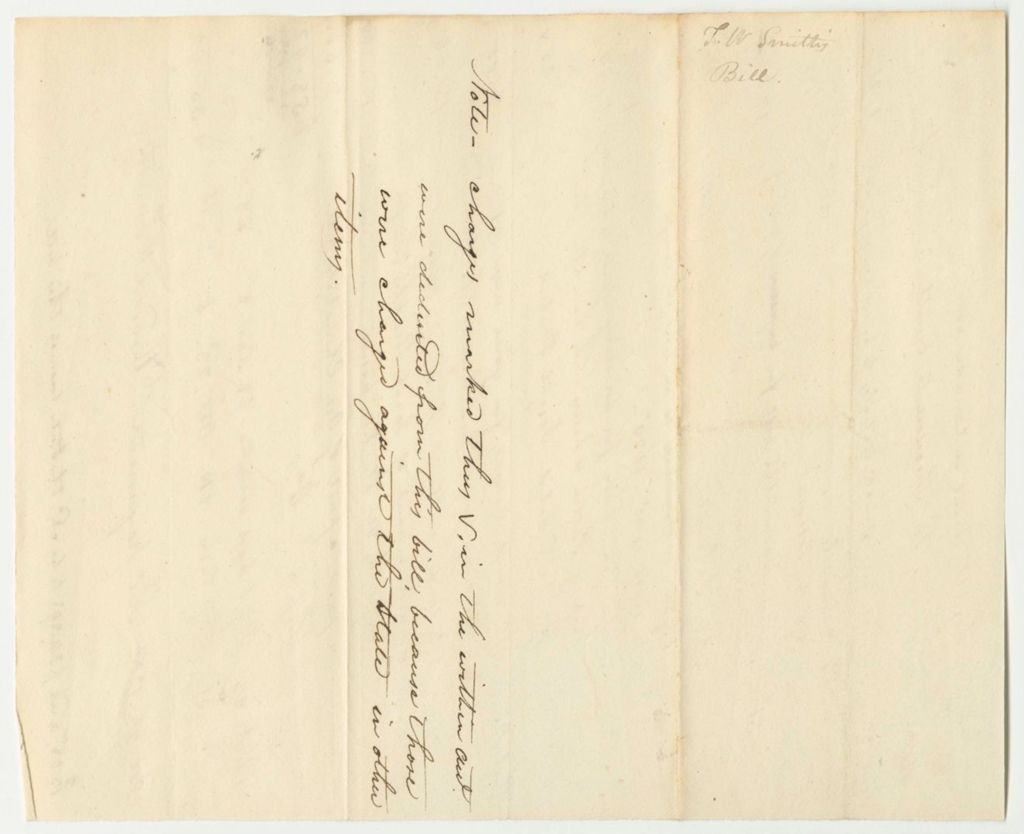 T. W Smith's
Bill.
Note - charges marked thus V, in the within and
were deducted from this bill, because those
were charged against the State in other
items.